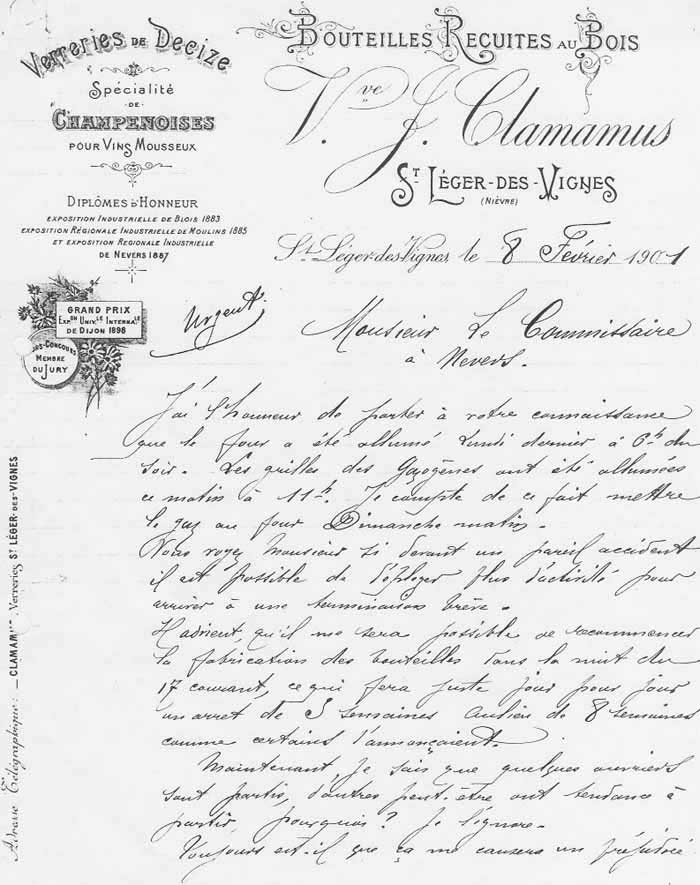 Verreries de Decize
Spécialité
DE
CHAMPENOISES
POUR VINS MOUSSEUX
DIPLÔMES D'HONNEUR
EXPOSITION INDUSTRIELLE DE BLOIS 1883
EXPOSITION RÉGIONALE INDUSTRIELLE DE MOULINS 1885
ET EXPOSITION REGIONALE INDUSTRIELLE
DE NEVERS 1887
GRAND PRIX
EXP.ON UNIV.LE INTERNA.LE
DE DIJON 1898
HORS-CONCOURS
MEMBRE
DU JURY
BOUTEILLES RECUITES AU BOIS
Vve J. Clamamus
ST LÉGER-DES-VIGNES
(NIÈVRE)
St Léger-des-Vignes le 8 Février 1901
Urgent.
Monsieur Le Commissaire
à Nevers.
J'ai l'honneur de porter à votre connaissance
que le four a été allumé Lundi dernier à 6h du
soir. Les grilles des Gazogènes ont été allumées
ce matin à 11h. Je compte de ce fait mettre
le gaz au four Dimanche matin.
Vous voyez Monsieur si devant un pareil accident
il est possible de déployer plus d'activité pour
arriver à une terminaison brève.
Il advient qu'il me sera possible de recommencer
la fabrication des bouteilles dans la nuit du
17 courant, ce qui fera juste jour pour jour
un arret de 5 semaines aulieu de 8 semaines
comme certains l'annonçaient.
Maintenant, je sais que quelques ouvriers
sont partis, d'autres peut-être ont tendance à
partir, pourquoi? Je l'ignore.
Toujours est-il que ça me causera un préjudice
Adresse Télégraphique: _ CLAMAMUS, Verreries ST LÉGER-DES-VIGNES